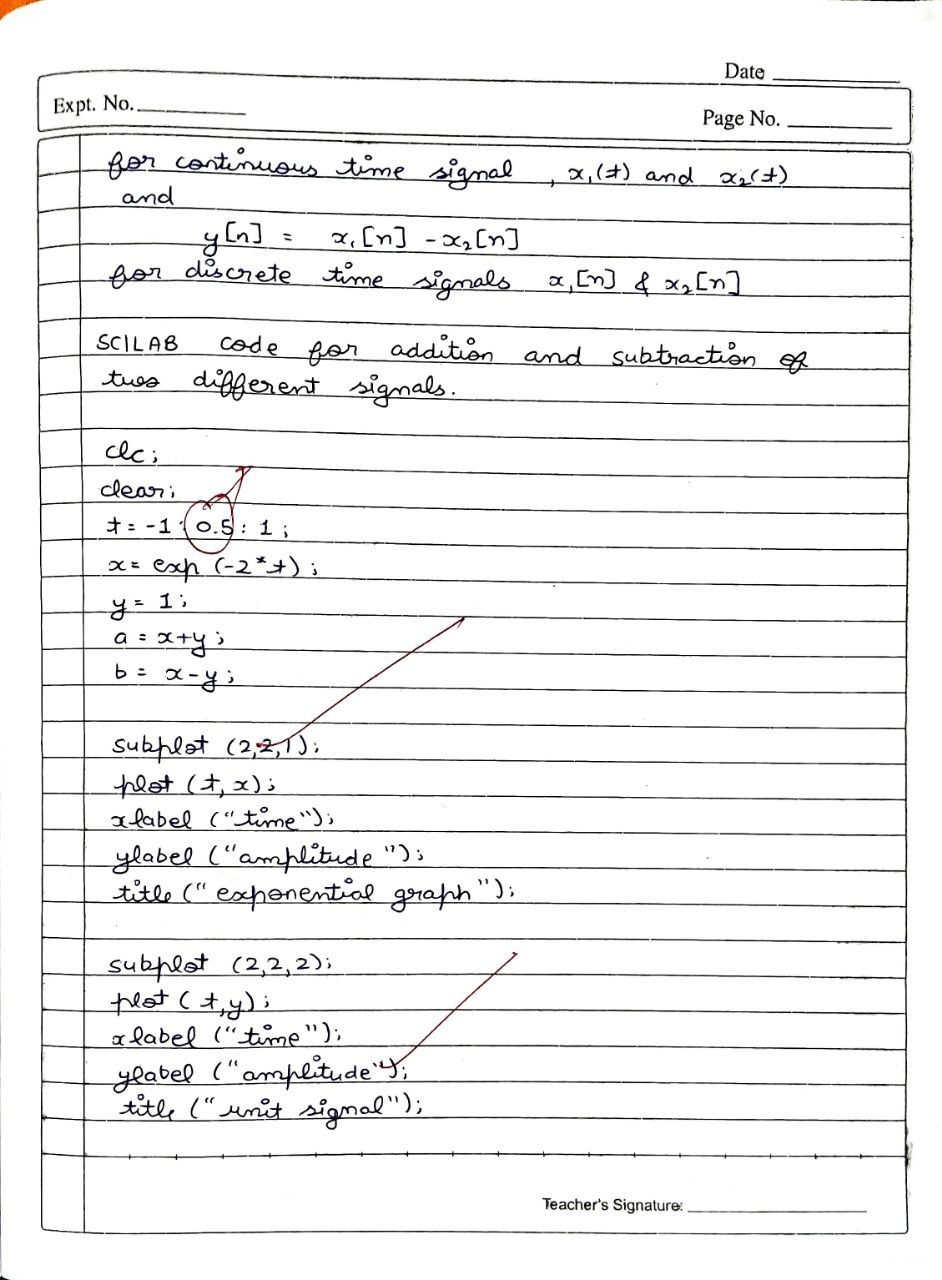 Date
Expt. No.
Page No.
for continuous time signal , x₁(t) and x₂(t)
and
y[n] = x₁[n] - x₂[n]
for discrete time signals x₁[n] & x₂[n]
SCILAB code for addition and subtraction of
two different signals.
clc;
clear;
t = -1 : 0.5 : 1 ;
x = exp (-2*t) ;
y = 1 ;
a = x+y ;
b = x-y ;
subplot (2,2,1);
plot (t, x);
xlabel ("time");
ylabel ("amplitude ");
title (" exponential graph ");
subplot (2,2,2);
plot ( t,y) ;
xlabel ("time");
ylabel ("amplitude");
title ("unit signal");
Teacher's Signature: